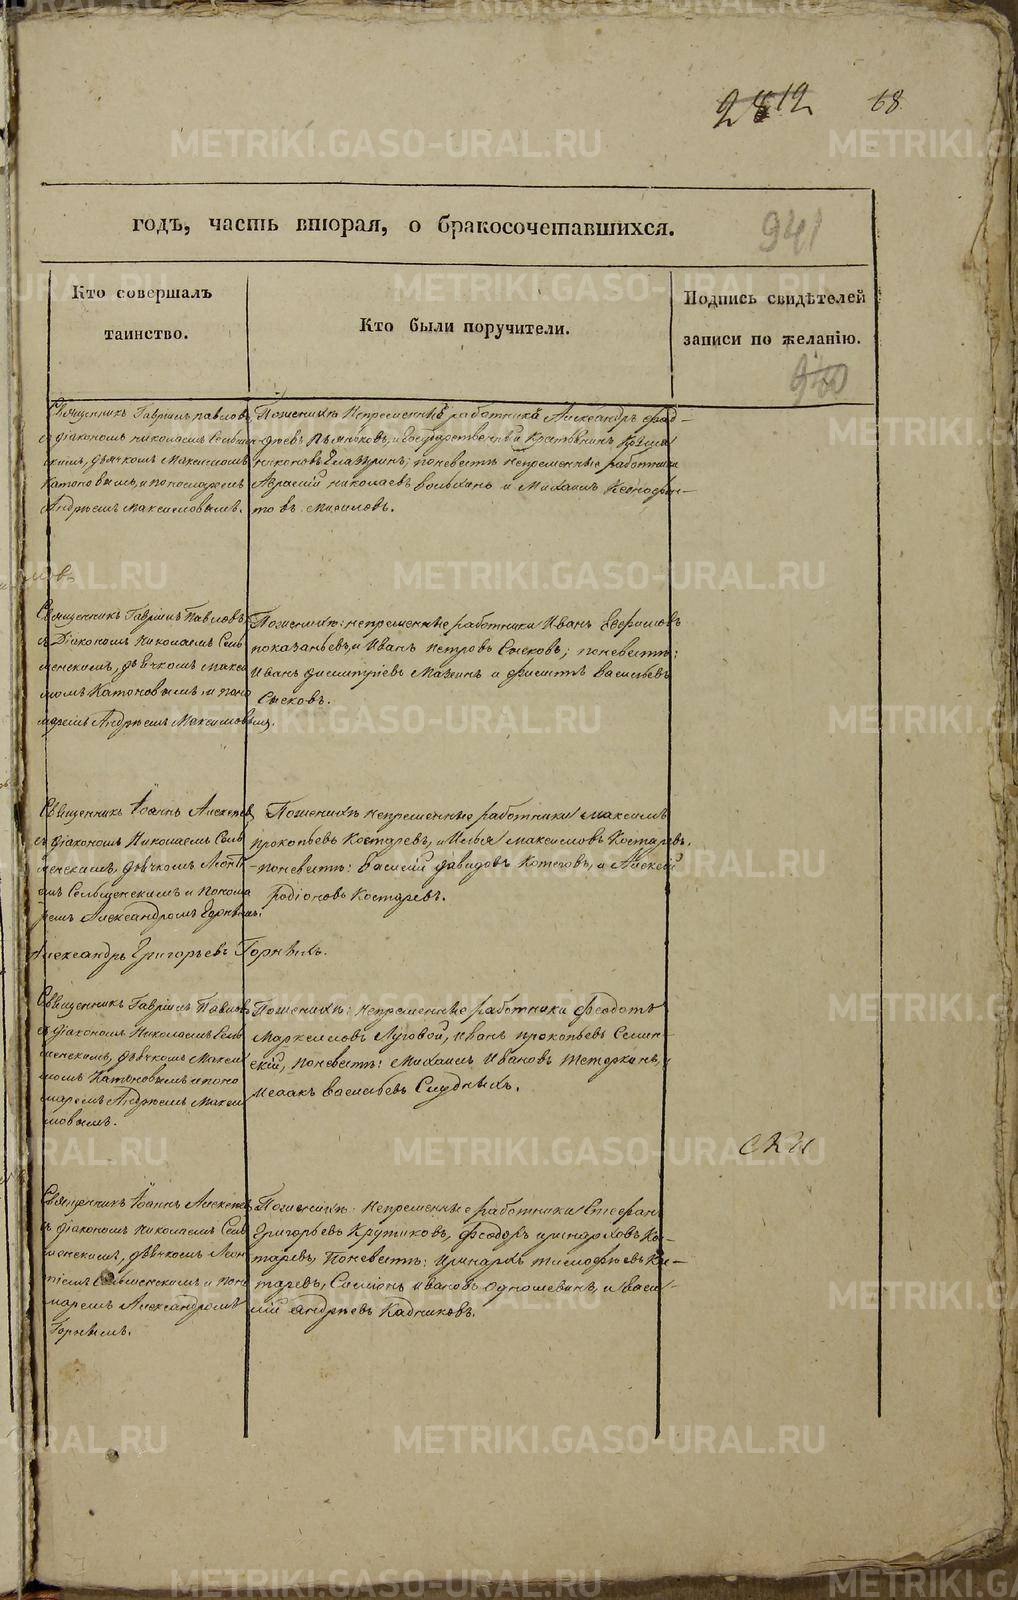 2812 68
годъ, часть вторая, о бракосочетавшихся.
941
Кто совершалъ
таинство.
Кто были поручители.
Подпись свидѣтелей
записи по желанію.
940
Священникъ Гавріилъ Павловъ
съ діакономъ Николаемъ
скимъ, дьячкомъ Максимомъ
Катоновымъ, и пономаремъ
Андрѣемъ Максимовымъ.
По женихѣ непремѣнный работникъ Александръ
и Государственный Крестьянинъ
никоновъ Глазуринъ; по невѣстѣ непремѣнные работники
николаевъ и Михаилъ Ксенофон-
товъ
Священникъ Гавріилъ Павловъ
съ Діакономъ Николаемъ Сель
менскимъ, дьячкомъ Макси
момъ Катоновымъ, и поно
маремъ Андрѣемъ Максимовымъ.
По женихѣ: непремѣнные работники Иванъ Ефремовъ
показаньевъ, и Иванъ Петровъ Сысковъ; по невѣстѣ:
Иванъ Димитріевъ Мазинъ и Филатъ Васильевъ
Сысковъ.
Священникъ Іоаннъ Алексѣевъ
съ діакономъ Николаемъ Сель
менскимъ, дьячкомъ Леонті
емъ Сельменскимъ и Понома
ремъ Александромъ Горнымъ.
По женихѣ непремѣнные работники Максимъ
Прокопьевъ Костаревъ, и Илья Максимовъ Костаревъ,
по невѣстѣ: Василій Давидовъ Котеговъ, и Алексѣй
Радіоновъ Костаревъ.
Александръ Григорьевъ Горныхъ.
Священникъ Гавріилъ Павловъ
съ діакономъ Николаемъ Сель
менскимъ, дьячкомъ Макси
момъ Катоновымъ и поно
маремъ Андрѣемъ Макси
мовымъ.
По женихѣ: непремѣнные работники Федотъ
Маркелловъ Луговой, Иванъ Прокопьевъ Селин-
скій, по невѣстѣ: Михаилъ Ивановъ Тетеркинъ, и
Исаакъ Васильевъ Слудныхъ.
Священникъ Іоаннъ Алексѣевъ
съ діакономъ Николаемъ Сель
менскимъ, дьячкомъ Леон
тіемъ Сельменскимъ и поно
маремъ Александромъ
Горнымъ.
По женихѣ: непремѣнные работники Стефанъ
Григорьевъ Крутиковъ, Феодоръ Иринарховъ Ко-
таревъ, по невѣстѣ: Иринархъ Тимофѣевъ Ко-
таревъ, Симіонъ Ивановъ Одношевинъ, и Васи-
лій Андрѣевъ Кадниковъ.
METRIKI.GASO-URAL.RU